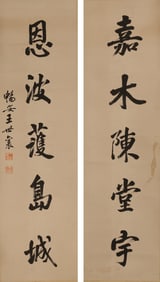 嘉木陳堂宇
恩波護島城
暢安王世襄